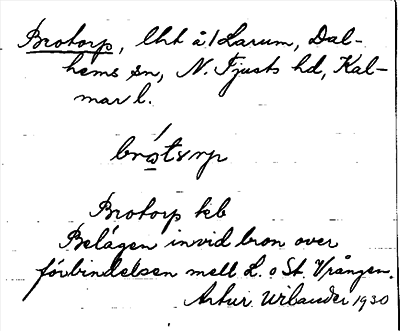 Brotorp, lht å/Larum, Dal-
hems sn, N. Tjusts hd, Kal-
mar l.
Brotorp kb
Belägen invid bron över
förbindelsen mell L. o St. Vrången.
Artur Wilander 1930